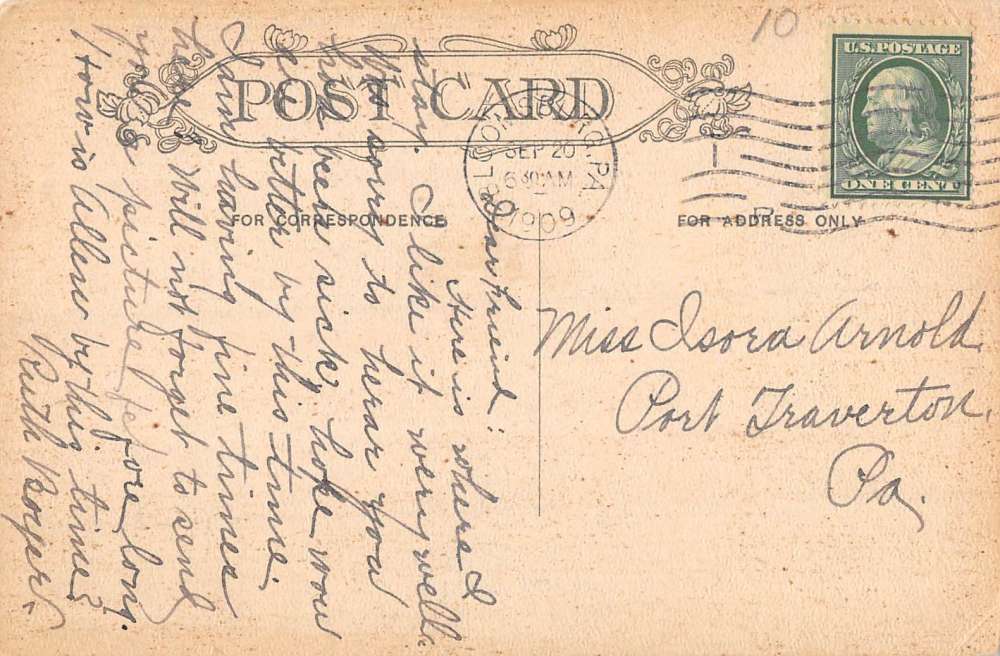 10
U.S. POSTAGE
ONE CENT
POST CARD
BLOOMSBURG, PA.
SEP 20
6 30 AM
1909
FOR CORRESPONDENCE
FOR ADDRESS ONLY
Dear Friend:
Here is where I
stay. I like it very well.
Was sorry to hear you
have been sick, hope you
are better by this time.
I am having fine times
here. Will not forget to send
you a picture before long.
How is Allen by this time?
Ruth Boyer.
Miss Isora Arnold.
Port Traverton,
Pa.